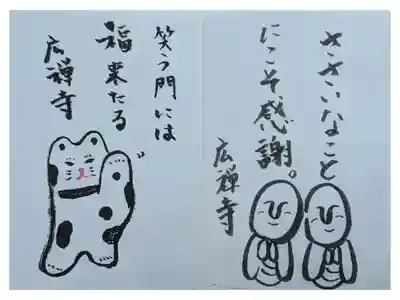 ささいなこと
にこそ感謝。
広禅寺
笑う門には
福来たる
広禅寺